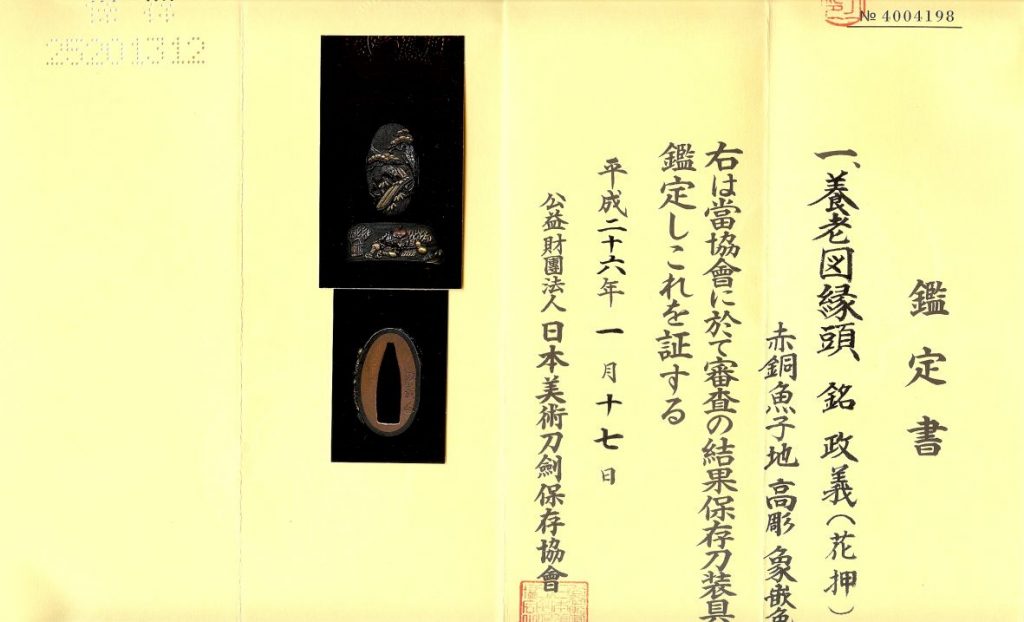 № 4004198
鑑定書
一、養老図縁頭 銘 政義(花押)
赤銅魚子地 高彫 象嵌色
右は當協會に於て審査の結果保存刀装具
鑑定しこれを証する
平成二十六年一月十七日
公益財團法人 日本美術刀劍保存協會
25201312